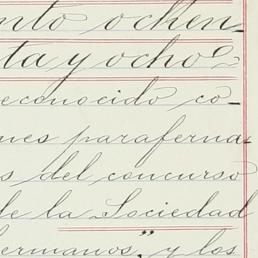 nto ochen-
ta y ocho
econocido co-
nes paraferna-
s del concurso
de la Sociedad
hermanos," y los